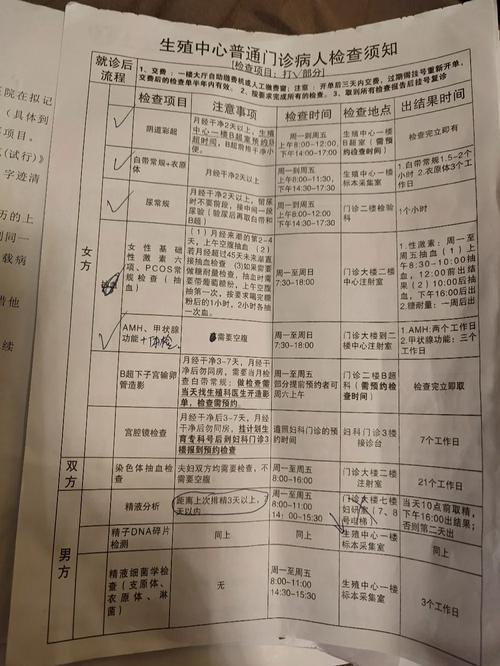 院在拟记
(具体到
项目。
(试行)》
字迹清
历的上
到同一
载病
借他
续
生殖中心普通门诊病人检查须知
[检查项目：打√部分]
就诊后流程
1、交费：一楼大厅自助缴费机或人工缴窗；注意：开单后三天内交费，过期需挂号重新开单，
交费后的检查单半年内有效。2、按要求完成所有的检查。3、取到所有检查报告后挂号复诊
检查项目
注意事项
检查时间
检查地点
出结果时间
女方
阴道彩超
月经干净2天以上，生殖
中心一楼B超室预约B
超时间，B超前排干净小
便。
周一到周五
上午8:00-12:00，
下午14:00-17:00
生殖中心一楼
B超室（需预
约检查时间）
检查完立即有
白带常规+衣原
体
月经干净2天以上
周一到周五
上午8:00-11:30，
下午14:30-17:30
生殖中心一楼
标本采集室
1.白带常规1.5-2个
小时 2.衣原体3个工
作日
尿常规
月经干净2天以上，留尿
时不要前段，接中间一段
尿验（验尿后再取白带和
B超）
周一到周五
上午8:00-12:00
下午14:00-17:00
门诊二楼检验
科
1个小时
女性基础
性激素六
项、PCOS常
规检查（抽
血）
（1）月经来潮的第2-4
天，上午空腹抽血 （2）
若月经超过45天未来潮直
接抽血检查 (3)如果需要
做糖耐量检查，抽血时需
要带葡萄糖粉，上午空腹
抽第一次，按要求喝完糖
粉后的1小时，2小时各抽
一次血。
周一至周日
7:30-18:00
门诊大楼二楼
中心注射室
1.性激素：周一至
周五抽血（1）上
午8:30-10:00抽
血，12:00前出结
果（2）10:00后抽
血，下午16:00后出
2.糖耐量：一周后出
AMH、甲状腺
功能+体检
需要空腹
周一至周日
7:30-18:00
门诊大楼到二楼
中心注射室
1.AMH:两个工作日
2.甲状腺功能：三个
工作日
B超下子宫输卵
管造影
月经干净3-7天，月经干
净后勿同房，需要当月检
查白带常规；做检查需
当天找生殖科医生开造影
单，检查需预约。
周一至周五
部分提前预约者可
周六上午
门诊二楼B超
科（需预约检
查时间）
检查完立即取
宫腔镜检查
月经干净后3-7天，月经
干净后勿同房，挂计划生
育专科号后到妇科门诊3
楼报到预约
遵照妇科门诊的预
约时间
妇科门诊3楼
接诊台
7个工作日
双方
染色体抽血检
查
夫妇双方均需要检查，不
需要空腹
周一至周五
8:00-16:00
门诊大楼二楼
中心注射室
21个工作日
男方
精液分析
距离上次排精3天以上，7
天以内
周一至周五
8:00-11:00
14:00-15:30
门诊大楼七楼
妇研室（7、8
号电梯）
当天10点前取精，
下午16:00出结果；
否则第二天出
精子DNA碎片
检测
同上
同上
生殖中心一楼
标本采集室
同上
精液细菌学检
查（支原体、
衣原体、淋
菌）
无
周一至周五
8:00-11:00
14:30-15:30
生殖中心一楼
标本采集室
3个工作日